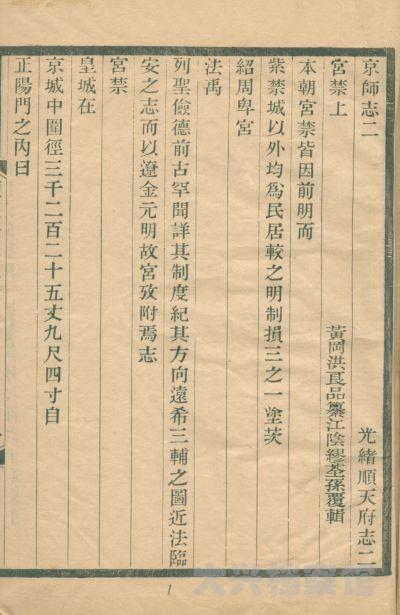 京師志二 光緒順天府志二
宮禁上 黃岡洪良品纂江陰繆荃孫覆輯
本朝宮禁皆因前明而
紫禁城以外均爲民居較之明制損三之一塗茨
紹周卑宮
法禹
列聖儉德前古罕聞詳其制度紀其方向遠希三輔之圖近法臨
安之志而以遼金元明故宮攷附焉志
宮禁
皇城在
京城中圍徑三千二百二十五丈九尺四寸自
正陽門之內曰
1
大兴档案馆